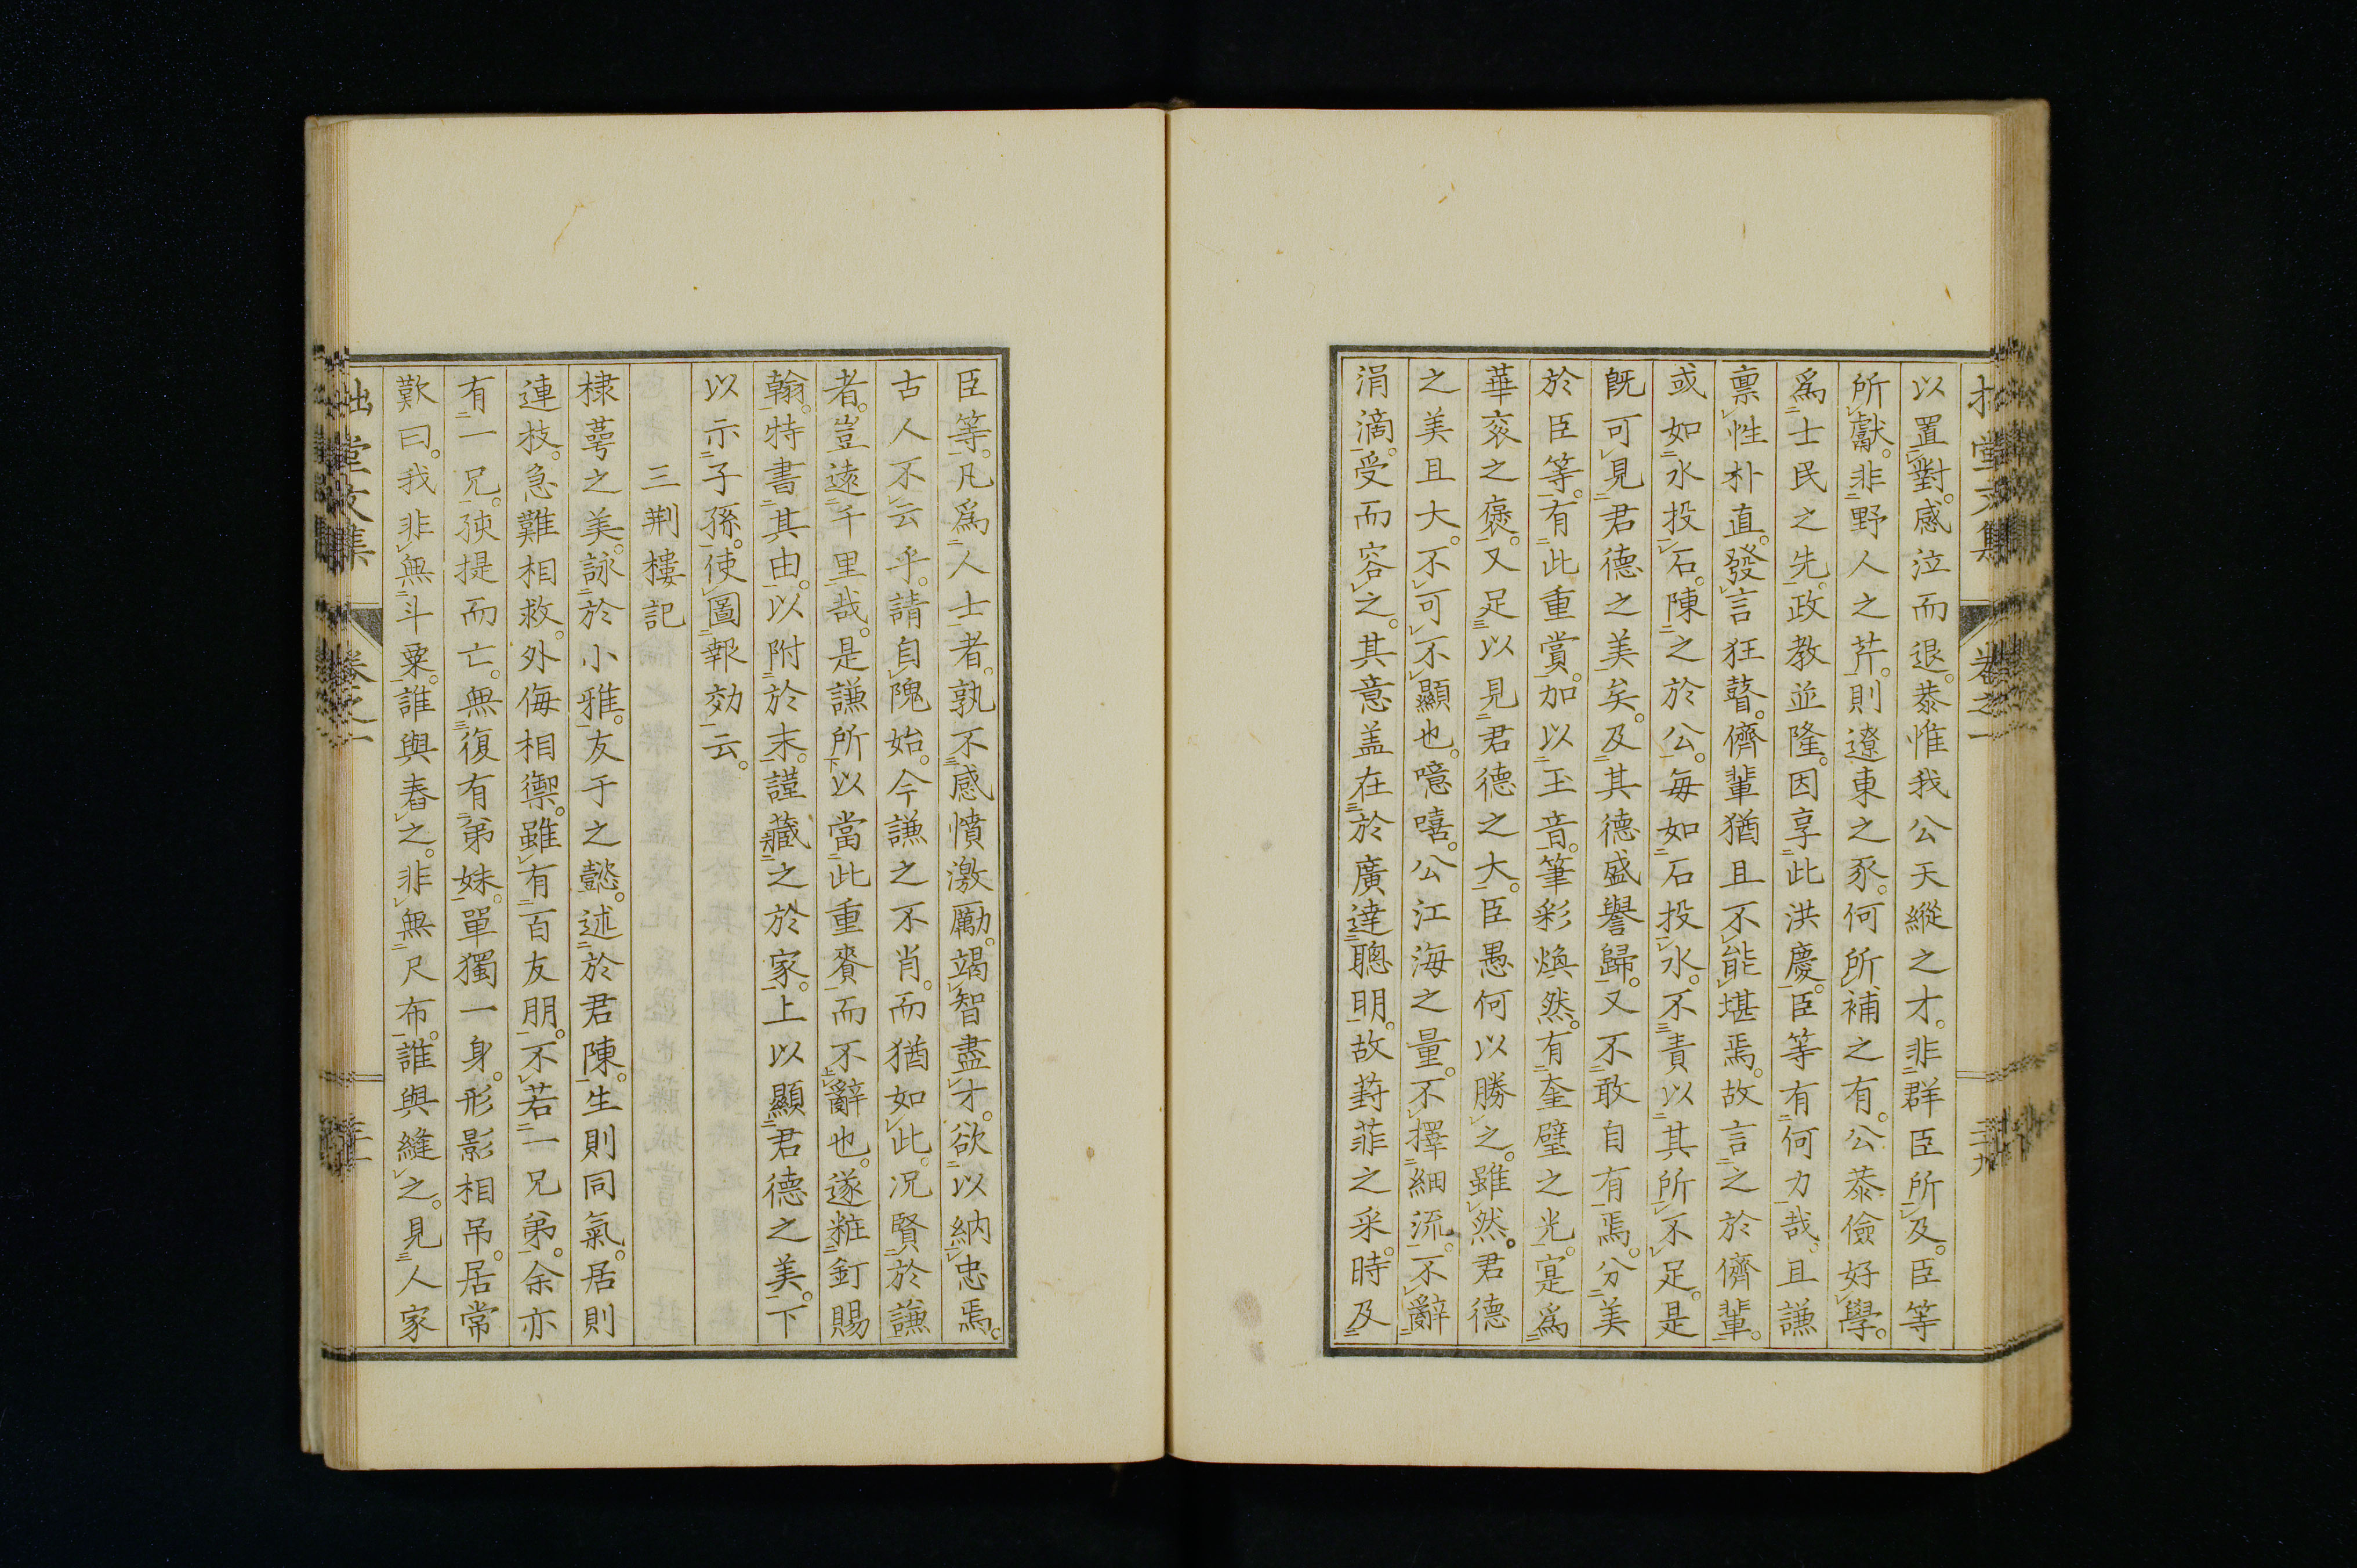 以置對。感泣而退。恭惟我公天縱之才。非群臣所及。臣等
所獻。非野人之芹。則遼東之豕。何所補之有。公恭儉好學。
爲士民之先。政教並隆。因享此洪慶。臣等有何力哉。且謙
禀性朴直。發言狂瞽。儕輩猶且不能堪焉。故言之於儕輩。
或如水投石。陳之於公。每如石投水。不責以其所不足。是
既可見君德之美矣。及其德盛譽歸。又不敢自有焉。分美
於臣等。有此重賞。加以玉音。筆彩煥然。有奎璧之光。寔爲
華衮之褒。又足以見君德之大。臣愚何以勝之。雖然。君德
之美且大。不可不顯也。噫嘻。公江海之量。不擇細流。不辭
涓滴。受而容之。其意盖在於廣達聰明。故葑菲之采。時及
臣等。凡爲人士者。孰不感憤激勵。竭智盡才。欲以納忠焉。
古人不云乎。請自隗始。今謙之不肖。而猶如此。况賢於謙
者。豈遠千里哉。是謙所以當此重賚而不辭也。遂粧釘賜
翰。特書其由。以附於末。謹藏之於家。上以顯君德之美。下
以示子孫。使圖報効云。
三荆樓記
棣萼之美。詠於小雅。友于之懿。述於君陳。生則同氣。居則
連枝。急難相救。外侮相禦。雖有百友朋。不若一兄弟。余亦
有一兄。孩提而亡。無復有弟妹。單獨一身。形影相吊。居常
歎曰。我非無斗粟。誰與舂之。非無尺布。誰與縫之。見人家
堂文集
卷之一